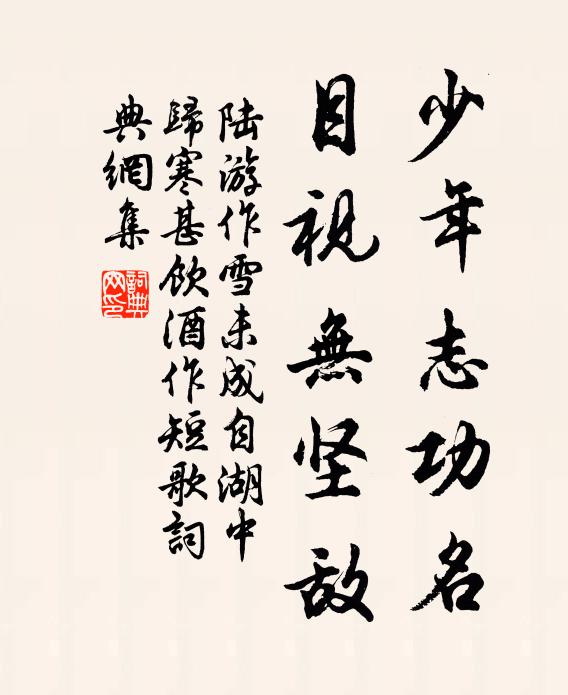 少年志功名
目視無坚敌
陆游作雪未成自湖中
歸寒甚飲酒作短歌詞
典網集
詞典網印